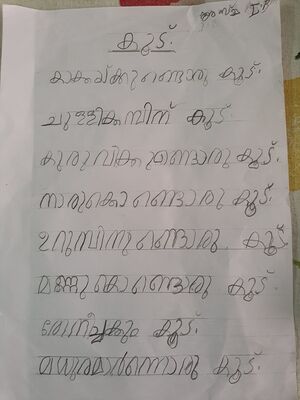 അസ്ന I B
കൂട്.
കാക്കയ്ക്കുണ്ടൊരു കൂട്.
ചുള്ളികമ്പിന് കൂട്.
കുരുവിക്കുണ്ടൊരു കൂട്.
നാരുകൊണ്ടൊരു കൂട്.
ഉറുമ്പിനുണ്ടൊരു കൂട്
മണ്ണുകൊണ്ടൊരു കൂട്.
തേനീച്ചക്കും കൂട്.
മധുരമാർന്നൊരു കൂട്.